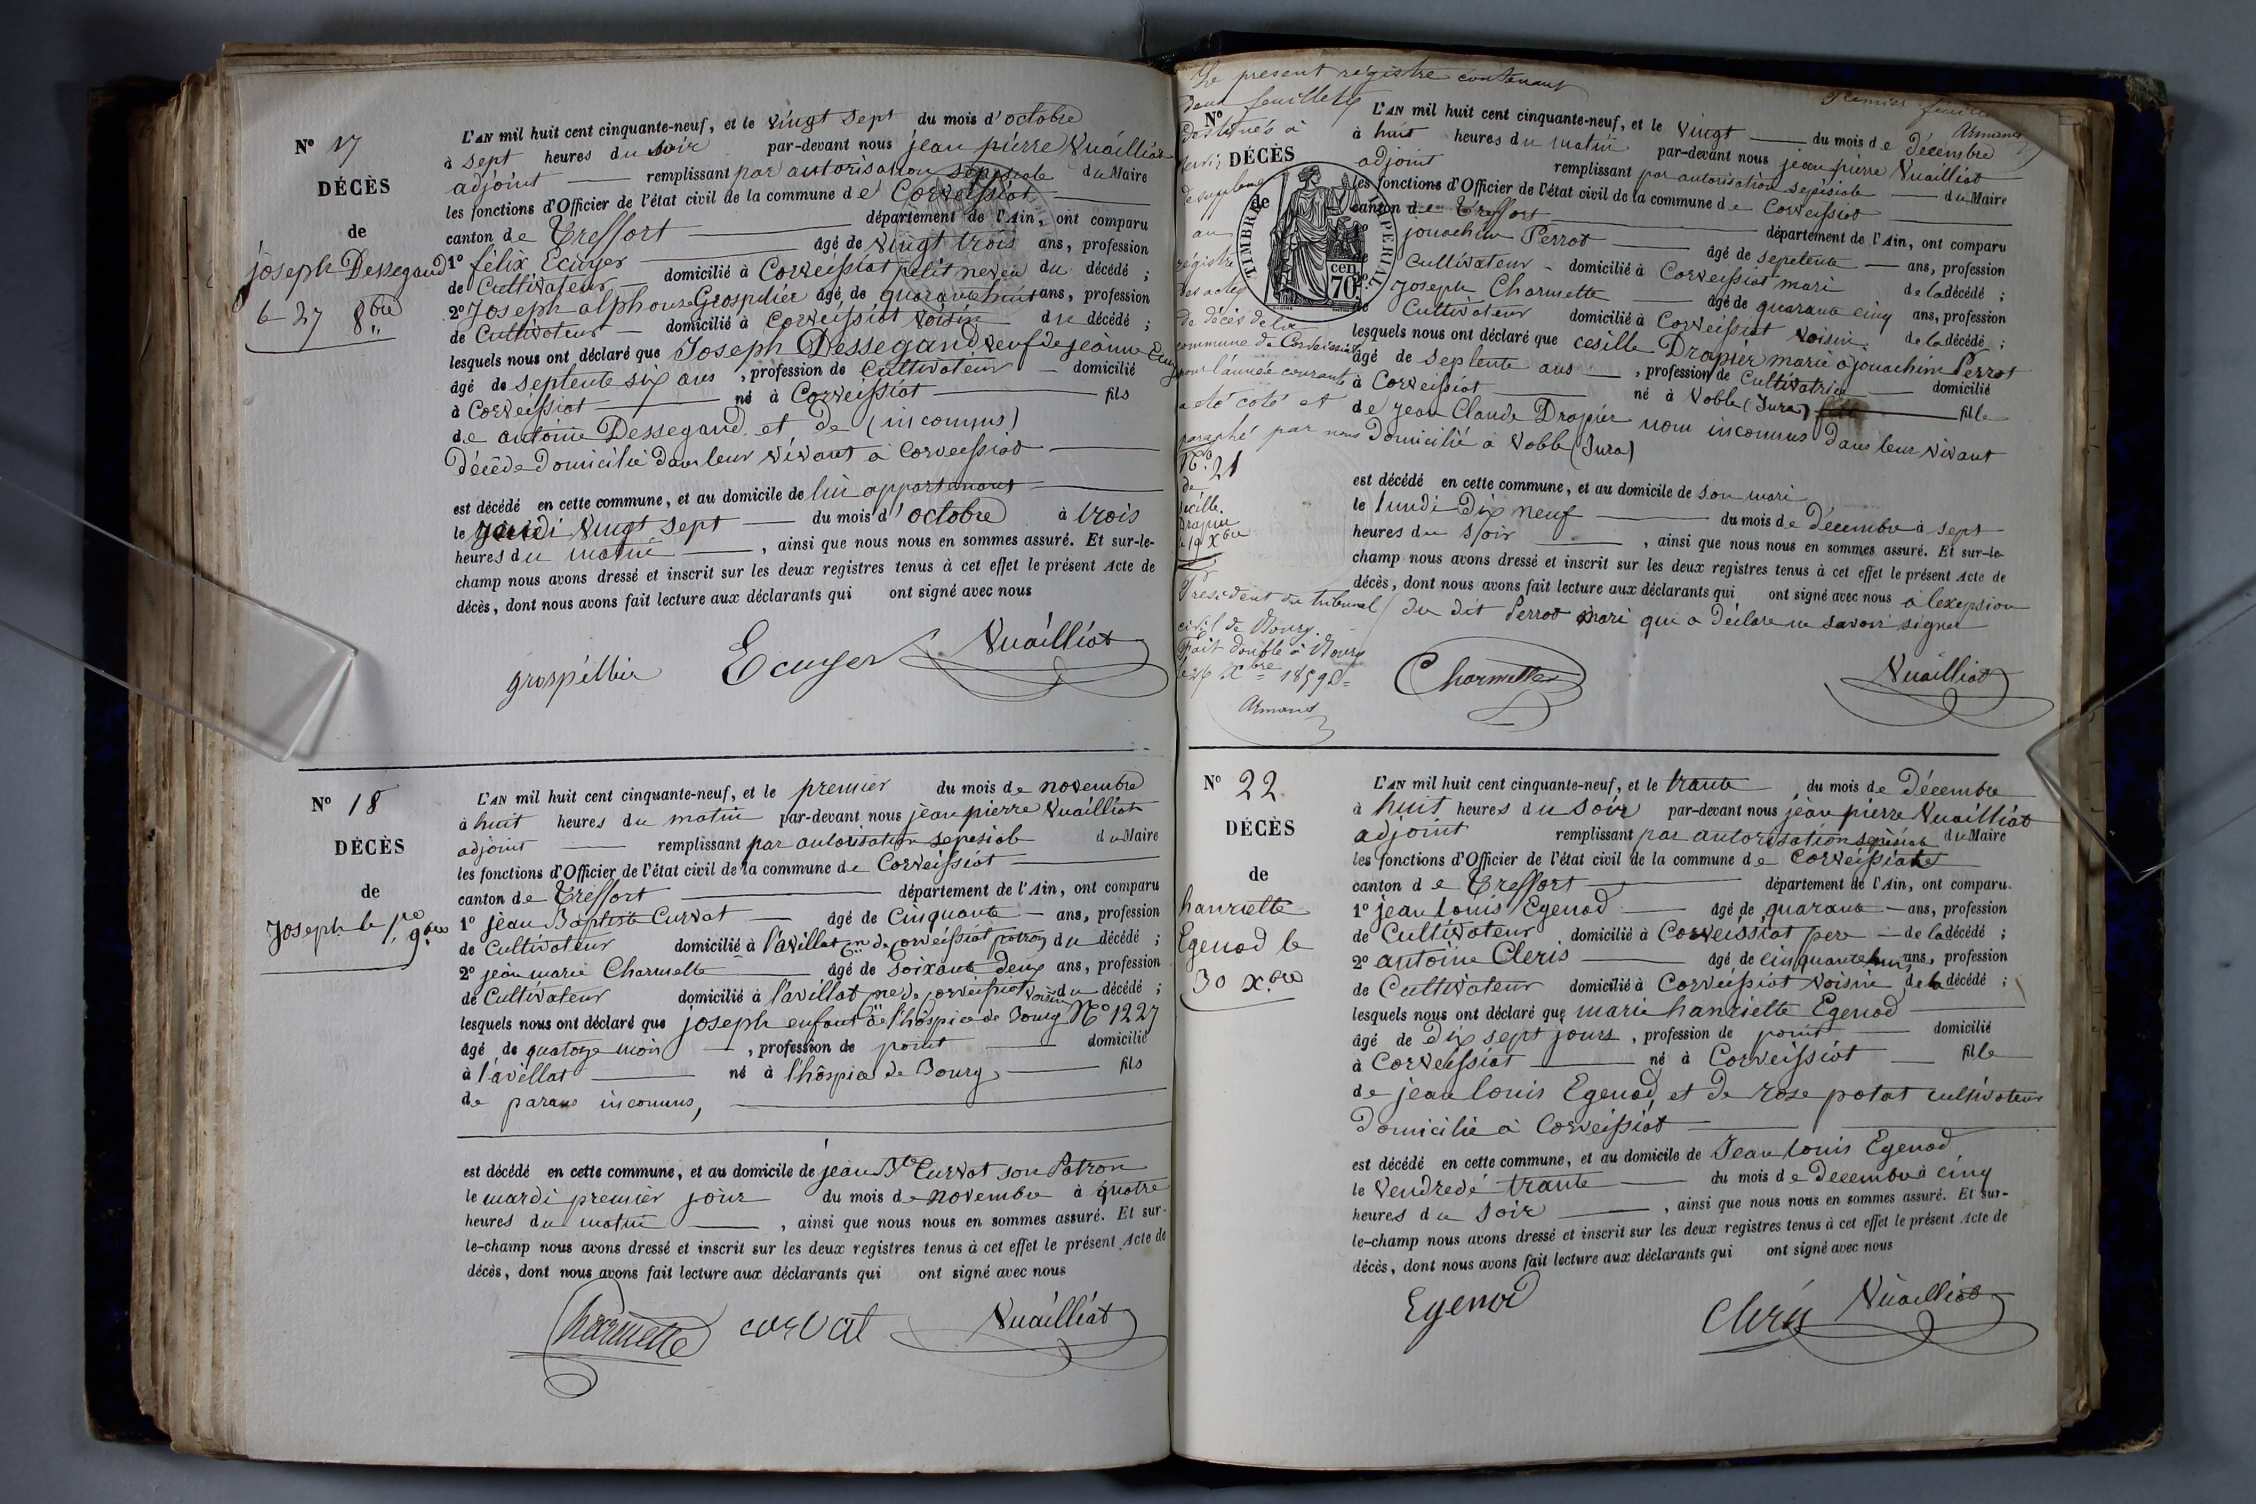 N° 17
DÉCÈS
de
joseph Dessegand
le 27 8bre
L'AN mil huit cent cinquante-neuf, et le vingt sept du mois d'octobre
à sept heures du soir par-devant nous jean pierre Nuailliat
adjoint remplissant par autorisation sepesiale du Maire
les fonctions d'Officier de l'état civil de la commune de Corveissiat
canton de Treffort département de l'Ain, ont comparu
1° félix Ecuyer âgé de vingt trois ans, profession
de Cultivateur domicilié à Corveissiat petit neveu du décédé ;
2° Joseph alphonse Grospelier âgé de quarante huit ans, profession
de Cultivateur domicilié à Corveissiat voisin du décédé ;
lesquels nous ont déclaré que Joseph Dessegand veuf de jeanne
âgé de septente six ans, profession de Cultivateur domicilié
à Corveissiat né à Corveissiat fils
de antoine Dessegand et de (inconnus)
Décédé Domicilié dans leur vivant à Corveissiat
est décédé en cette commune, et au domicile de lui appartenant
le jeudi vingt sept du mois d'octobre à trois
heures du matin, ainsi que nous nous en sommes assuré. Et sur-le-
champ nous avons dressé et inscrit sur les deux registres tenus à cet effet le présent Acte de
décès, dont nous avons fait lecture aux déclarants qui ont signé avec nous
grospellier Ecuyer Nuailliat
N° 18
DÉCÈS
de
Joseph le 1re 9bre
L'AN mil huit cent cinquante-neuf, et le premier du mois de novembre
à huit heures du matin par-devant nous jean pierre Nuailliat
adjoint remplissant par autorisation sepesiale du Maire
les fonctions d'Officier de l'état civil de la commune de Corveissiat
canton de Treffort département de l'Ain, ont comparu
1° jean Baptiste Curvat âgé de Cinquante ans, profession
de Cultivateur domicilié à l'avillat cne de corveissiat patron du décédé ;
2° jean marie Charmette âgé de soixante deux ans, profession
de Cultivateur domicilié à l'avillat cne de corveissiat voisin du décédé ;
lesquels nous ont déclaré que joseph enfant de l'hôspice de Bourg N° 1227
âgé de quatorze mois, profession de point domicilié
à l'avillat né à l'hôspice de Bourg fils
de parans inconnus,
est décédé en cette commune, et au domicile de jean Bte Curvat son Patron
le mardi premier jour du mois de novembre à quatre
heures du matin, ainsi que nous nous en sommes assuré. Et sur-
le-champ nous avons dressé et inscrit sur les deux registres tenus à cet effet le présent Acte de
décès, dont nous avons fait lecture aux déclarants qui ont signé avec nous
Charmette curvat Nuailliat
Le present registre contenant
deux feuillets
destinés à
servir
de supplement
au
régistre
des actes
de décès de la
commune de Corveissiat
pour l'année courante
a été coté et
paraphé par nous
Président du tribunal
civil de Bourg.
Fait double à Bourg
le 26 Xbre 1859
Armand
Premier feuillet
Armand
TIMBRE IMPERIAL
cen.
70.
N°
DÉCÈS
de
N° 21
de
cécille
Drapier
le 19 Xbre
L'AN mil huit cent cinquante-neuf, et le vingt du mois de décembre
à huit heures du matin par-devant nous jean pierre Nuailliat
adjoint remplissant par autorisation sepésiale du Maire
les fonctions d'Officier de l'état civil de la commune de Corveissiat
canton de Treffort département de l'Ain, ont comparu
jouachim Perrot âgé de sepetente ans, profession
Cultivateur domicilié à Corveissiat mari de la décédé ;
Joseph Charmette âgé de quarante cinq ans, profession
Cultivateur domicilié à Corveissiat voisin de la décédé ;
lesquels nous ont déclaré que cesille Drapier marie à jouachim Perrot
âgé de septente ans, profession de Cultivatrice domicilié
à Corveissiat né à Voble (Jura) fille
de jean Claude Drapier nom inconnus dans leur vivant
Domicilié à Voble (Jura)
est décédé en cette commune, et au domicile de son mari
le lundi Dix neuf du mois de Décembre à sept
heures du soir, ainsi que nous nous en sommes assuré. Et sur-le-
champ nous avons dressé et inscrit sur les deux registres tenus à cet effet le présent Acte de
décès, dont nous avons fait lecture aux déclarants qui ont signé avec nous à lexepsion
du dit Perrot mari qui a déclaré ne savoir signer
Charmette Nuailliat
N° 22
DÉCÈS
de
hanriette
Egenod le
30 xbre
L'AN mil huit cent cinquante-neuf, et le trante du mois de Décembre
à huit heures du soir par-devant nous jean pierre Nuailliat
adjoint remplissant par autorisation sepésiale du Maire
les fonctions d'Officier de l'état civil de la commune de Corveissiat
canton de Treffort département de l'Ain, ont comparu.
1° jean louis Egenod âgé de quarante ans, profession
de Cultivateur domicilié à Corveissiat pere de la décédé ;
2° antoine Cleris âgé de cinquante huit ans, profession
de Cultivateur domicilié à Corveissiat voisin de la décédé ;
lesquels nous ont déclaré que marie hanriette Egenod
âgé de Dix sept jours, profession de point domicilié
à Corveissiat né à Corveissiat fille
de jean louis Egenod et de rose potat cultivateur
domicilié à Corveissiat
est décédé en cette commune, et au domicile de Jean louis Egenod
le vendredé trante du mois de Decembre à cinq
heures du soir, ainsi que nous nous en sommes assuré. Et sur-
le-champ nous avons dressé et inscrit sur les deux registres tenus à cet effet le présent Acte de
décès, dont nous avons fait lecture aux déclarants qui ont signé avec nous
Egenod Cleris Nuailliat